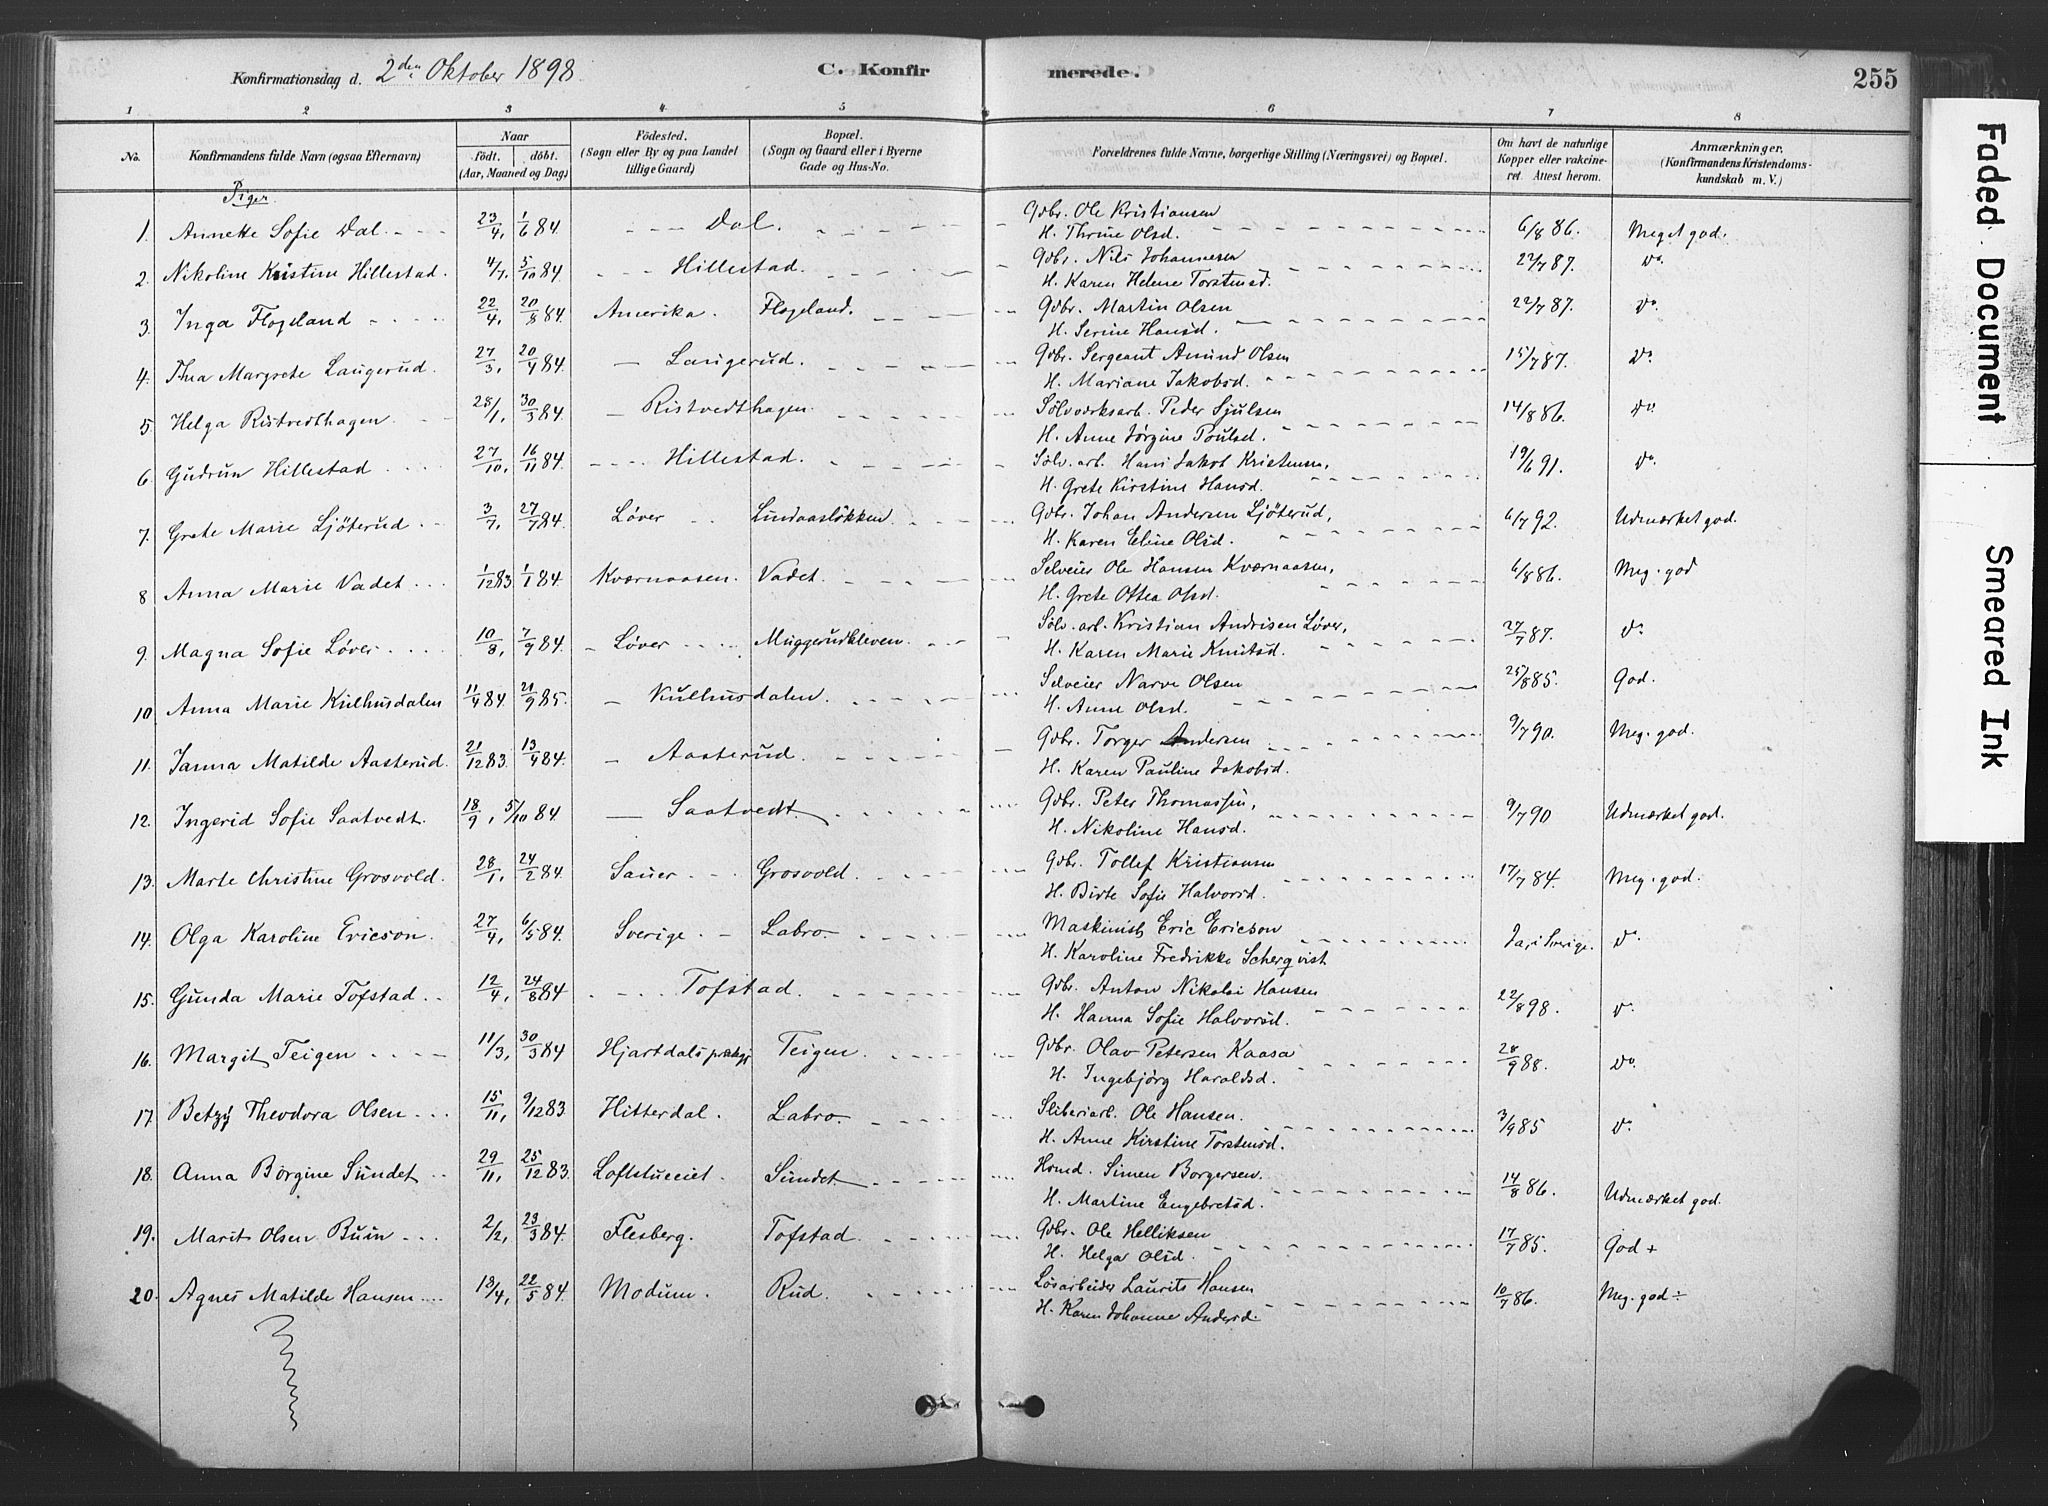 Konfirmationsdag d. 2den Oktober 1898. C. Konfirmerede. 255
1 2 3 4 5 6 7 8
No. Konfirmandens fulde Navn (ogsaa Efternavn) Naar født. døbt. (Aar, Maaned og Dag) Födested. (Sogn eller By og paa Landet tillige Gaard) Bopæl. (Sogn og Gaard eller i Byerne Gade og Hus-No. Forældrenes fulde Navne, borgerlige Stilling (Næringsvei) og Bopæl. Om havt de naturlige Kopper eller vakcineret. Attest herom. Anmærkninger, (Konfirmandens Kristendomskundskab m. V.)
Piger
1. Annette Sofie Dal 23/4, 1/6 84. Dal. Gdbr. Ole Kristiansen 6/8 86. Meget god.
H. Thrine Olsd.
2. Nikoline Kristine Hillestad. 4/7, 5/10 84. Hillestad. Gdbr. Nils Johannesen 22/7 87. do.
H. Karen Helene Torstensd.
3. Inga Flogeland 22/4, 20/8 84. Amerika. Flogeland. Gdbr. Martin Olsen 22/7 87. do.
H. Serine Hansd.
4. Thea Margrete Laugerud. 27/3, 20/4 84. Laugerud. Gdbr. Sergeant Amund Olsen 15/7 87. do.
H. Mariane Jakobsd.
5. Helga Ristvedthagen 28/1, 30/3 84. Ristvedthagen. Sølvværksarb. Peder Sjulsen 14/8 86. do.
H. Anne Jørgine Poulsd.
6. Gudrun Hillestad 27/10, 16/11 84. Hillestad. Sølv. arb. Hans Jakob Kristensen, 19/6 91. do.
H. Grete Kirstine Hansd.
7. Grete Marie Ljöterud 3/7, 27/7 84. Løver Lindaasløkken Gdbr. Johan Andersen Ljöterud, 6/7 92. Udmærket god.
H. Karen Eline Olsd.
8 Anna Marie Vadet 1/12 83 1/1 84. Kværnaasen. Vadet. Selveier Ole Hansen Kværnaasen, 6/8 86. Meg. god
H. Grete Ottea Olsd.
9. Magna Sofie Løver 10/8, 7/9 84. Løver Muggerudkleven Sølv. arb. Kristian Andrisen Løver, 27/7 87. do.
H. Karen Marie Knutsd.
10. Anna Marie Kulhusdalen 11/4 84. 21/9 85. Kulhusdalen. Selveier Narve Olsen 25/8 85. God.
H. Anne Olsd.
11. Janna Matilde Aasterud. 21/12 83. 13/4 84. Aasterud. Gdbr. Torger Andersen 9/7 90. Meg. god.
H. Karen Pauline Jakobsd.
12. Ingerid Sofie Saatvedt. 18/9, 5/10 84 Saatvedt. Gdbr. Peter Thomassen, 9/7 90 Udmærket god.
H. Nikoline Hansd.
13. Marte Christine Grosvold. 28/1, 24/2 84. Sauer Grosvold. Gdbr. Tollef Kristiansen 17/7 84. Meg. god.
H. Birte Sofie Halvorsd.
14. Olga Karoline Ericson. 27/4, 6/5 84. Sverige. Labro. Maskinist Eric Ericson Ja, i Sverige. do.
H. Karoline Fredrikke Scherqvist
15. Gunda Marie Tofstad 12/4, 24/8 84. Tofstad. Gdbr. Anton Nikolai Hansen 22/8 98. do.
H. Hanna Sofie Halvorsd.
16. Margit Teigen 11/3, 30/3 84 Hjartdals Teigen. Gdbr. Olav Petersen Kaasa 28/9 88. do.
H. Ingebjörg Haraldsd.
17. Betzy Theodora Olsen 15/11, 9/12 83 Hitterdal. Labro. Sliberiarb. Ole Hansen. 3/9 85 do.
H. Anne Kirstine Torstensd.
18. Anna Borgine Sundet 29/11, 25/12 83. Loftstuceiet. Sundet Hsmd. Simen Borgersen. 14/8 86. Udmærket god.
H. Martine Engebretsd.
19. Marit Olsen Buin 2/2, 23/3 84. Flesberg. Tofstad Gdbr. Ole Helliksen 17/7 85. God +
H. Helga Olsd.
20. Agnes Matilde Hansen 13/4, 22/5 84. Modum. Rud. Løsarbeider Laurits Hansen 10/7 86. Meg. god ÷
H. Karen Johanne Andersd.
Faded Document
Smeared Ink